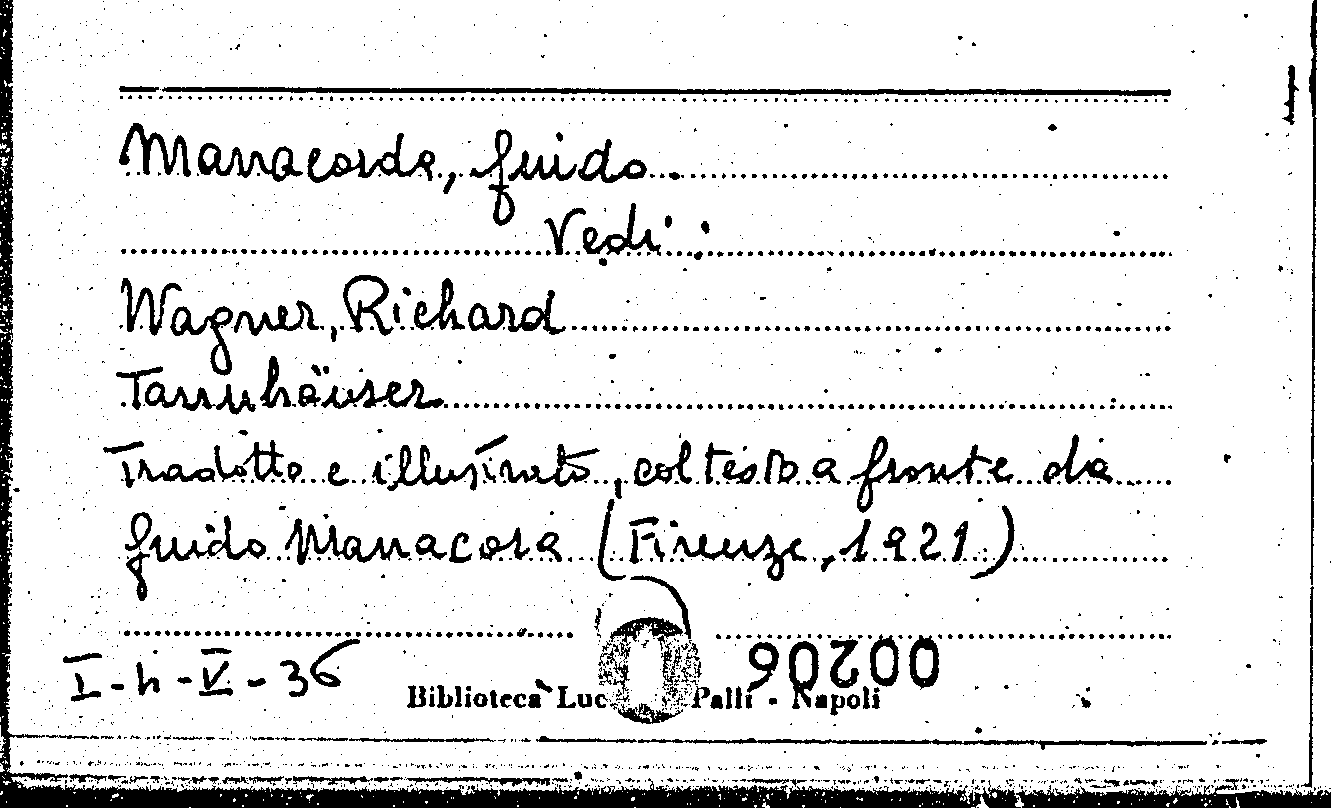 Manacorda, Guido.
Vedi:
Wagner, Richard
Tannhäuser
Tradotto e illustrato, col testo a fronte da
Guido Manacora (Firenze, 1921)
I-h-V-36
00206
Biblioteca Luc Palli - Napoli